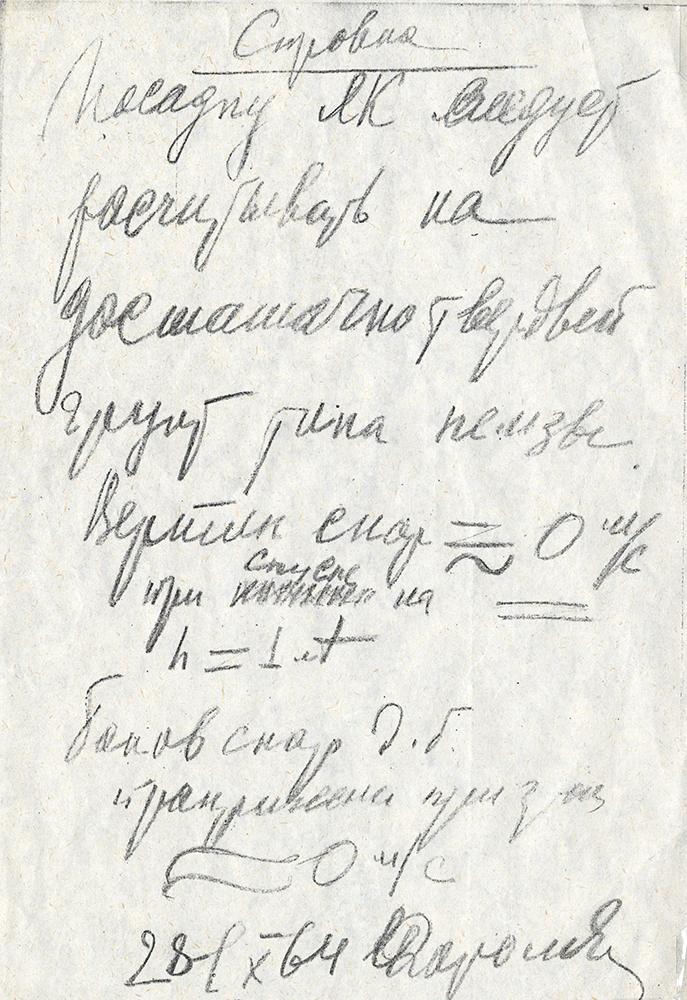 Справка
Посадку ЛК следует
расчитывать на
достаточно твердый
грунт типа пемзы
Вертик скор ≈ 0 м/с
при спуске на
h = 1 м
Боков скор д.б.
≈ 0 м/с
28/X 64 СКоролев